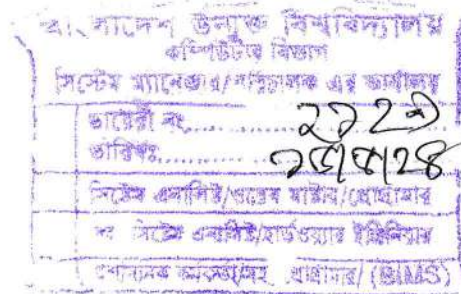 বাংলাদেশ উন্মুক্ত বিশ্ববিদ্যালয়
কম্পিউটার বিভাগ
সিস্টেম ম্যানেজার/পরিচালক এর কার্যালয়
ডায়েরী নং
তারিখঃ
সিস্টেম এনালিষ্ট/ওয়েব মাষ্টার/প্রোগ্রামার
সিস্টেম এনালিষ্ট/হার্ডওয়্যার ইঞ্জিনিয়ার
প্রোগ্রামার/ (BIMS)